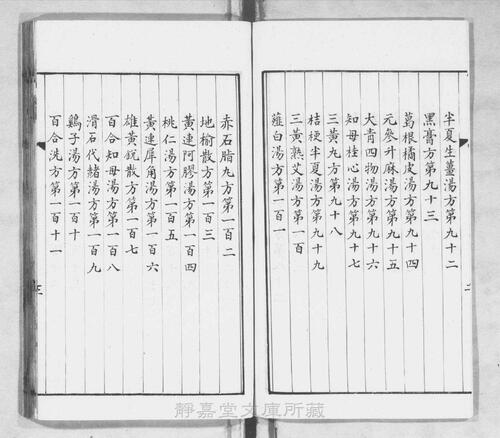 半夏生薑湯方第九十二
黑膏方第九十三
葛根橘皮湯方第九十四
元參升麻湯方第九十五
大青四物湯方第九十六
知母桂心湯方第九十七
三黃丸方第九十八
桔梗半夏湯方第九十九
三黃熟艾湯方第一百
薤白湯方第一百一
二
赤石脂丸方第一百二
地榆散方第一百三
黃連阿膠湯方第一百四
桃仁湯方第一百五
黃連犀角湯方第一百六
雄黃銳散方第一百七
百合知母湯方第一百八
滑石代赭湯方第一百九
鷄子湯方第一百十
百合洗方第一百十一
三
靜嘉堂文庫所藏